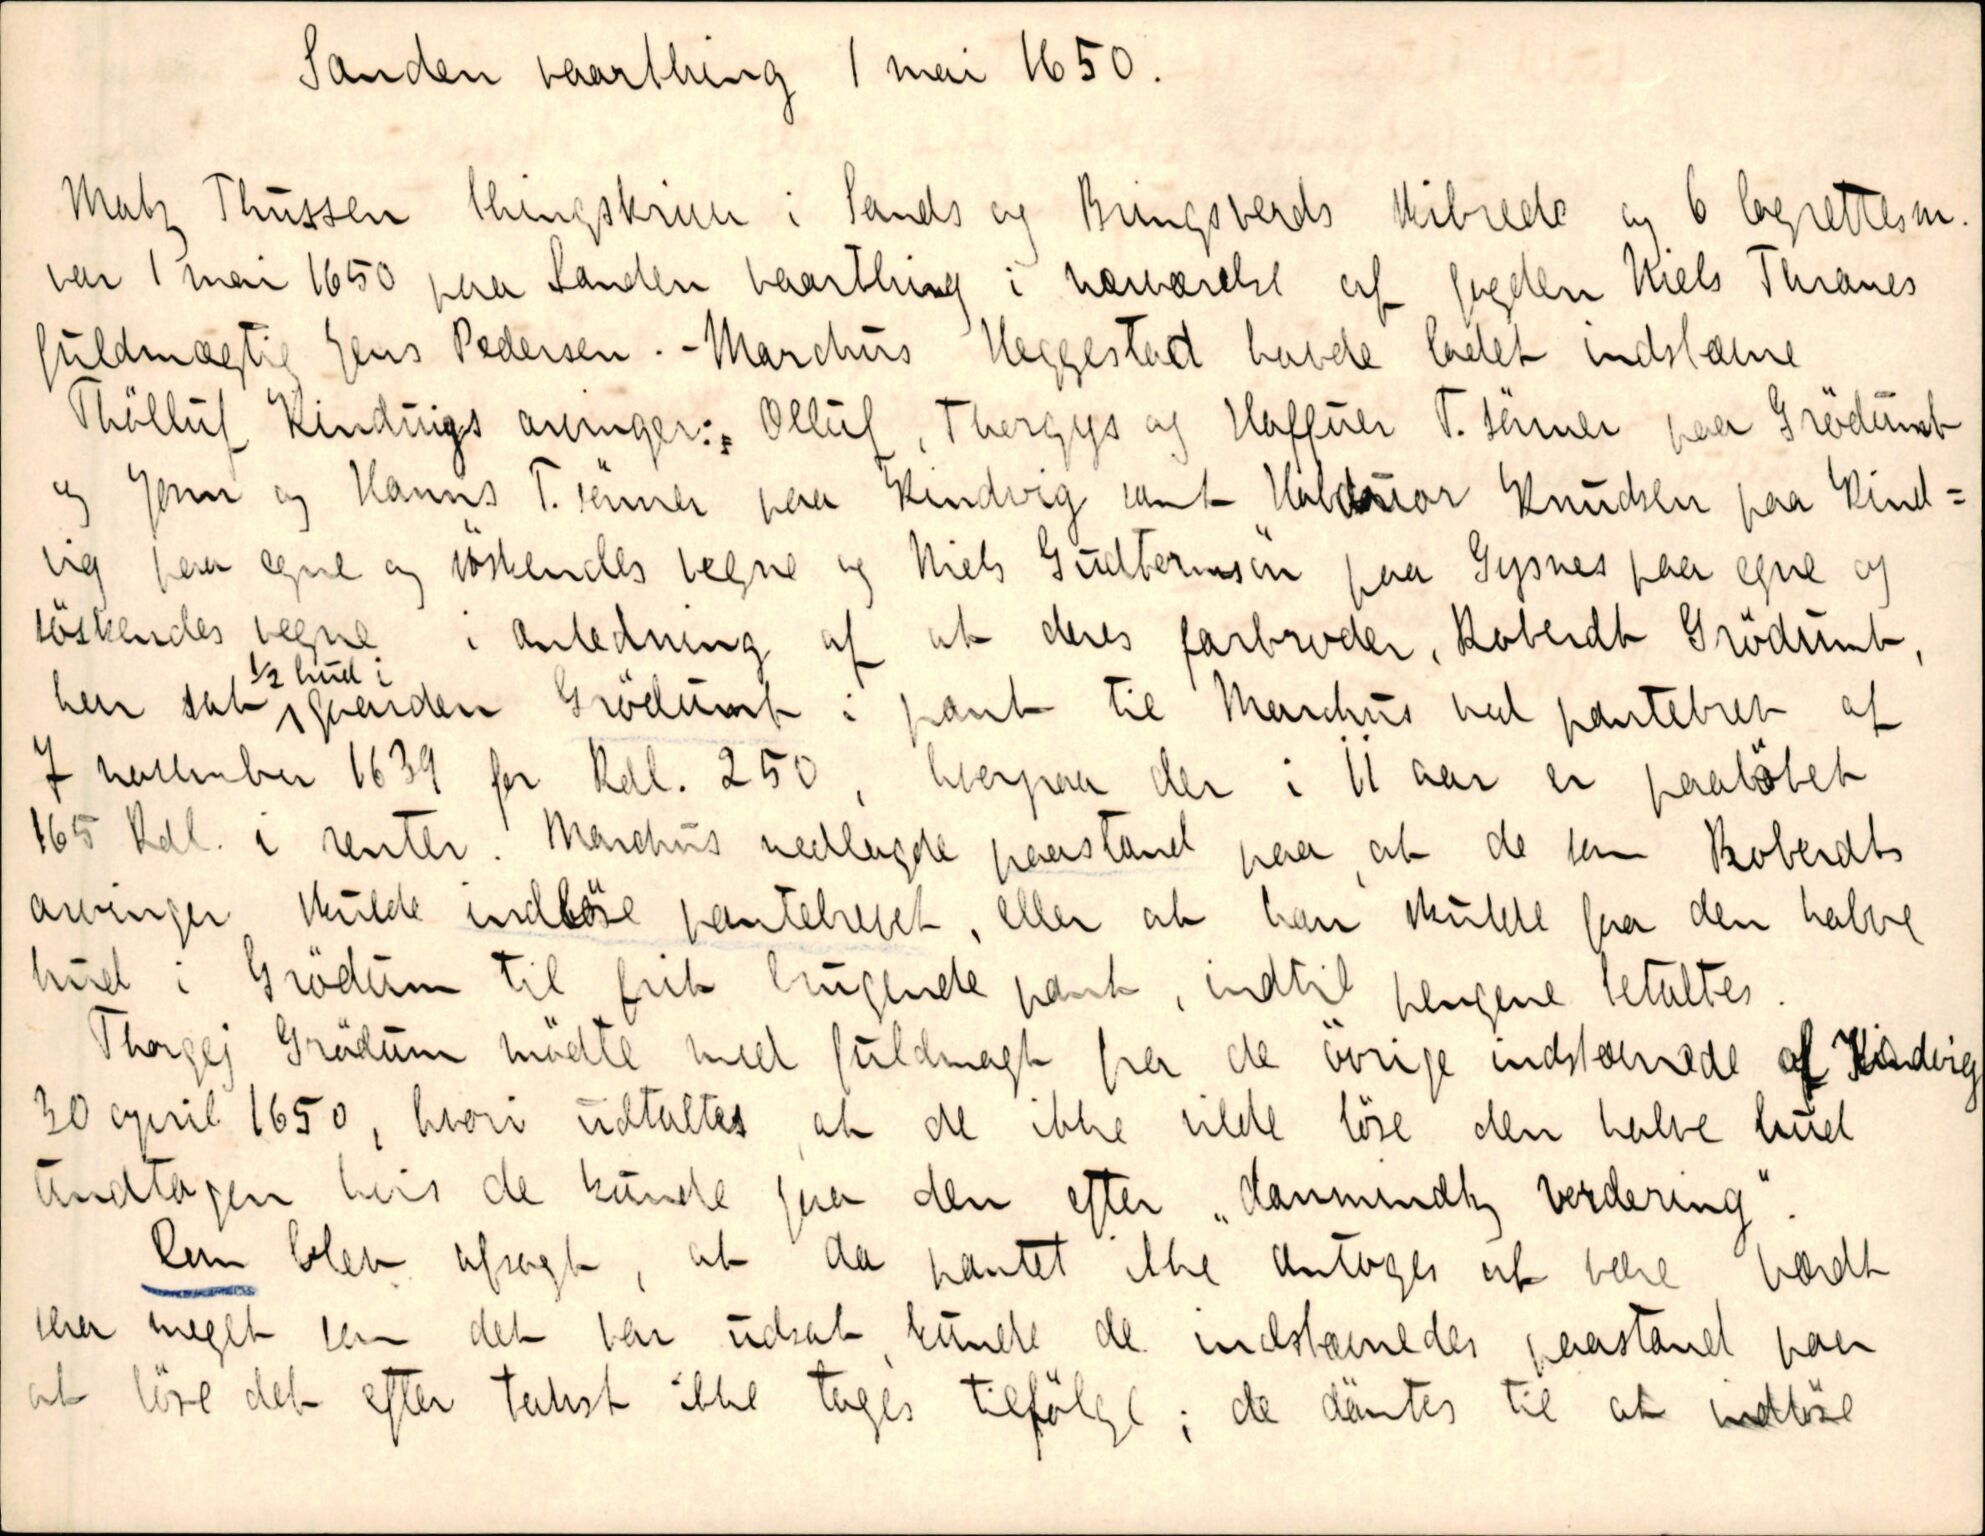 Sanden vaarthing 1 mai 1650.
Matz Thussen thingskriuer i Sands og Bringsverds skibrede og 6 lagrettesm.
var 1 mai 1650 paa Sanden vaarthing i nærværelse af fogden Niels Thranes
fuldmægtig Jens Pedersen. - Marchus Heggestad havde ladet indstævne
Thölluf Kinduigs arvinger: Olluf, Thorgys og Haffuer T. sönner paa Grödumb
og Jonn og Hanns T. sönner paa Kindvig samt Halduor Knudsen paa Kind=
vig paa egne og söskendes vegne og Niels Gudtormsön paa Gysnes paa egne og
söskendes vegne i anledning af at deres farbroder, Roberdt Grödumb,
har sat 1/2 hud i gaarden Grödumb i pant til Marchus ved pantebrev af
7 november 1639 for Rdl. 250, hvorpaa der i 11 aar er paalöbet
165 Rdl. i renter. Marchus nedlagde paastand paa, at de som Roberdts
arvinger skulde indlöse pantebrevet, eller at han skulde faa den halve
hud i Grödum til frit brugende pant, indtil pengene betaltes.
Thorgej Grödum mödte med fuldmagt fra de övrige indstævnede af Kindvig
30 april 1650, hvori udtaltes, at de ikke vilde löse den halve hud
undtagen hvis de kunde faa den efter „danmindtz verdering".
Dom blev afsagt, at da pantet ikke antoges at være værdt
saa meget som det var udsat, kunde de indstævnedes paastand paa
at löse det efter takst ikke tages tilfölge; de dömtes til at indlöse